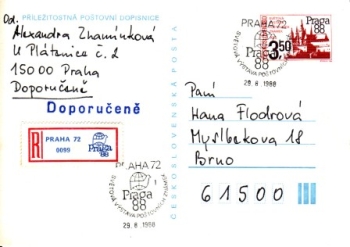 PŘÍLEŽITOSTNÁ POŠTOVNÍ DOPISNICE
Od.
Alexandra Znamínková
U Plátenice č. 2
15000 Praha
Doporučeně
Doporučeně
R
PRAHA 72
0099
Praga
88
PRAHA 72
Praga
88
SVĚTOVÁ VÝSTAVA POŠTOVNÍCH ZNÁMEK
29. 8 1988
ČESKOSLOVENSKÁ POŠTA
PRAHA 72
Praga
88
SVĚTOVÁ VÝSTAVA POŠTOVNÍCH ZNÁMEK
29. 8 1988
Praga
88
3.50
Paní
Hana Flodrová
Myslbekova 18
Brno
61500